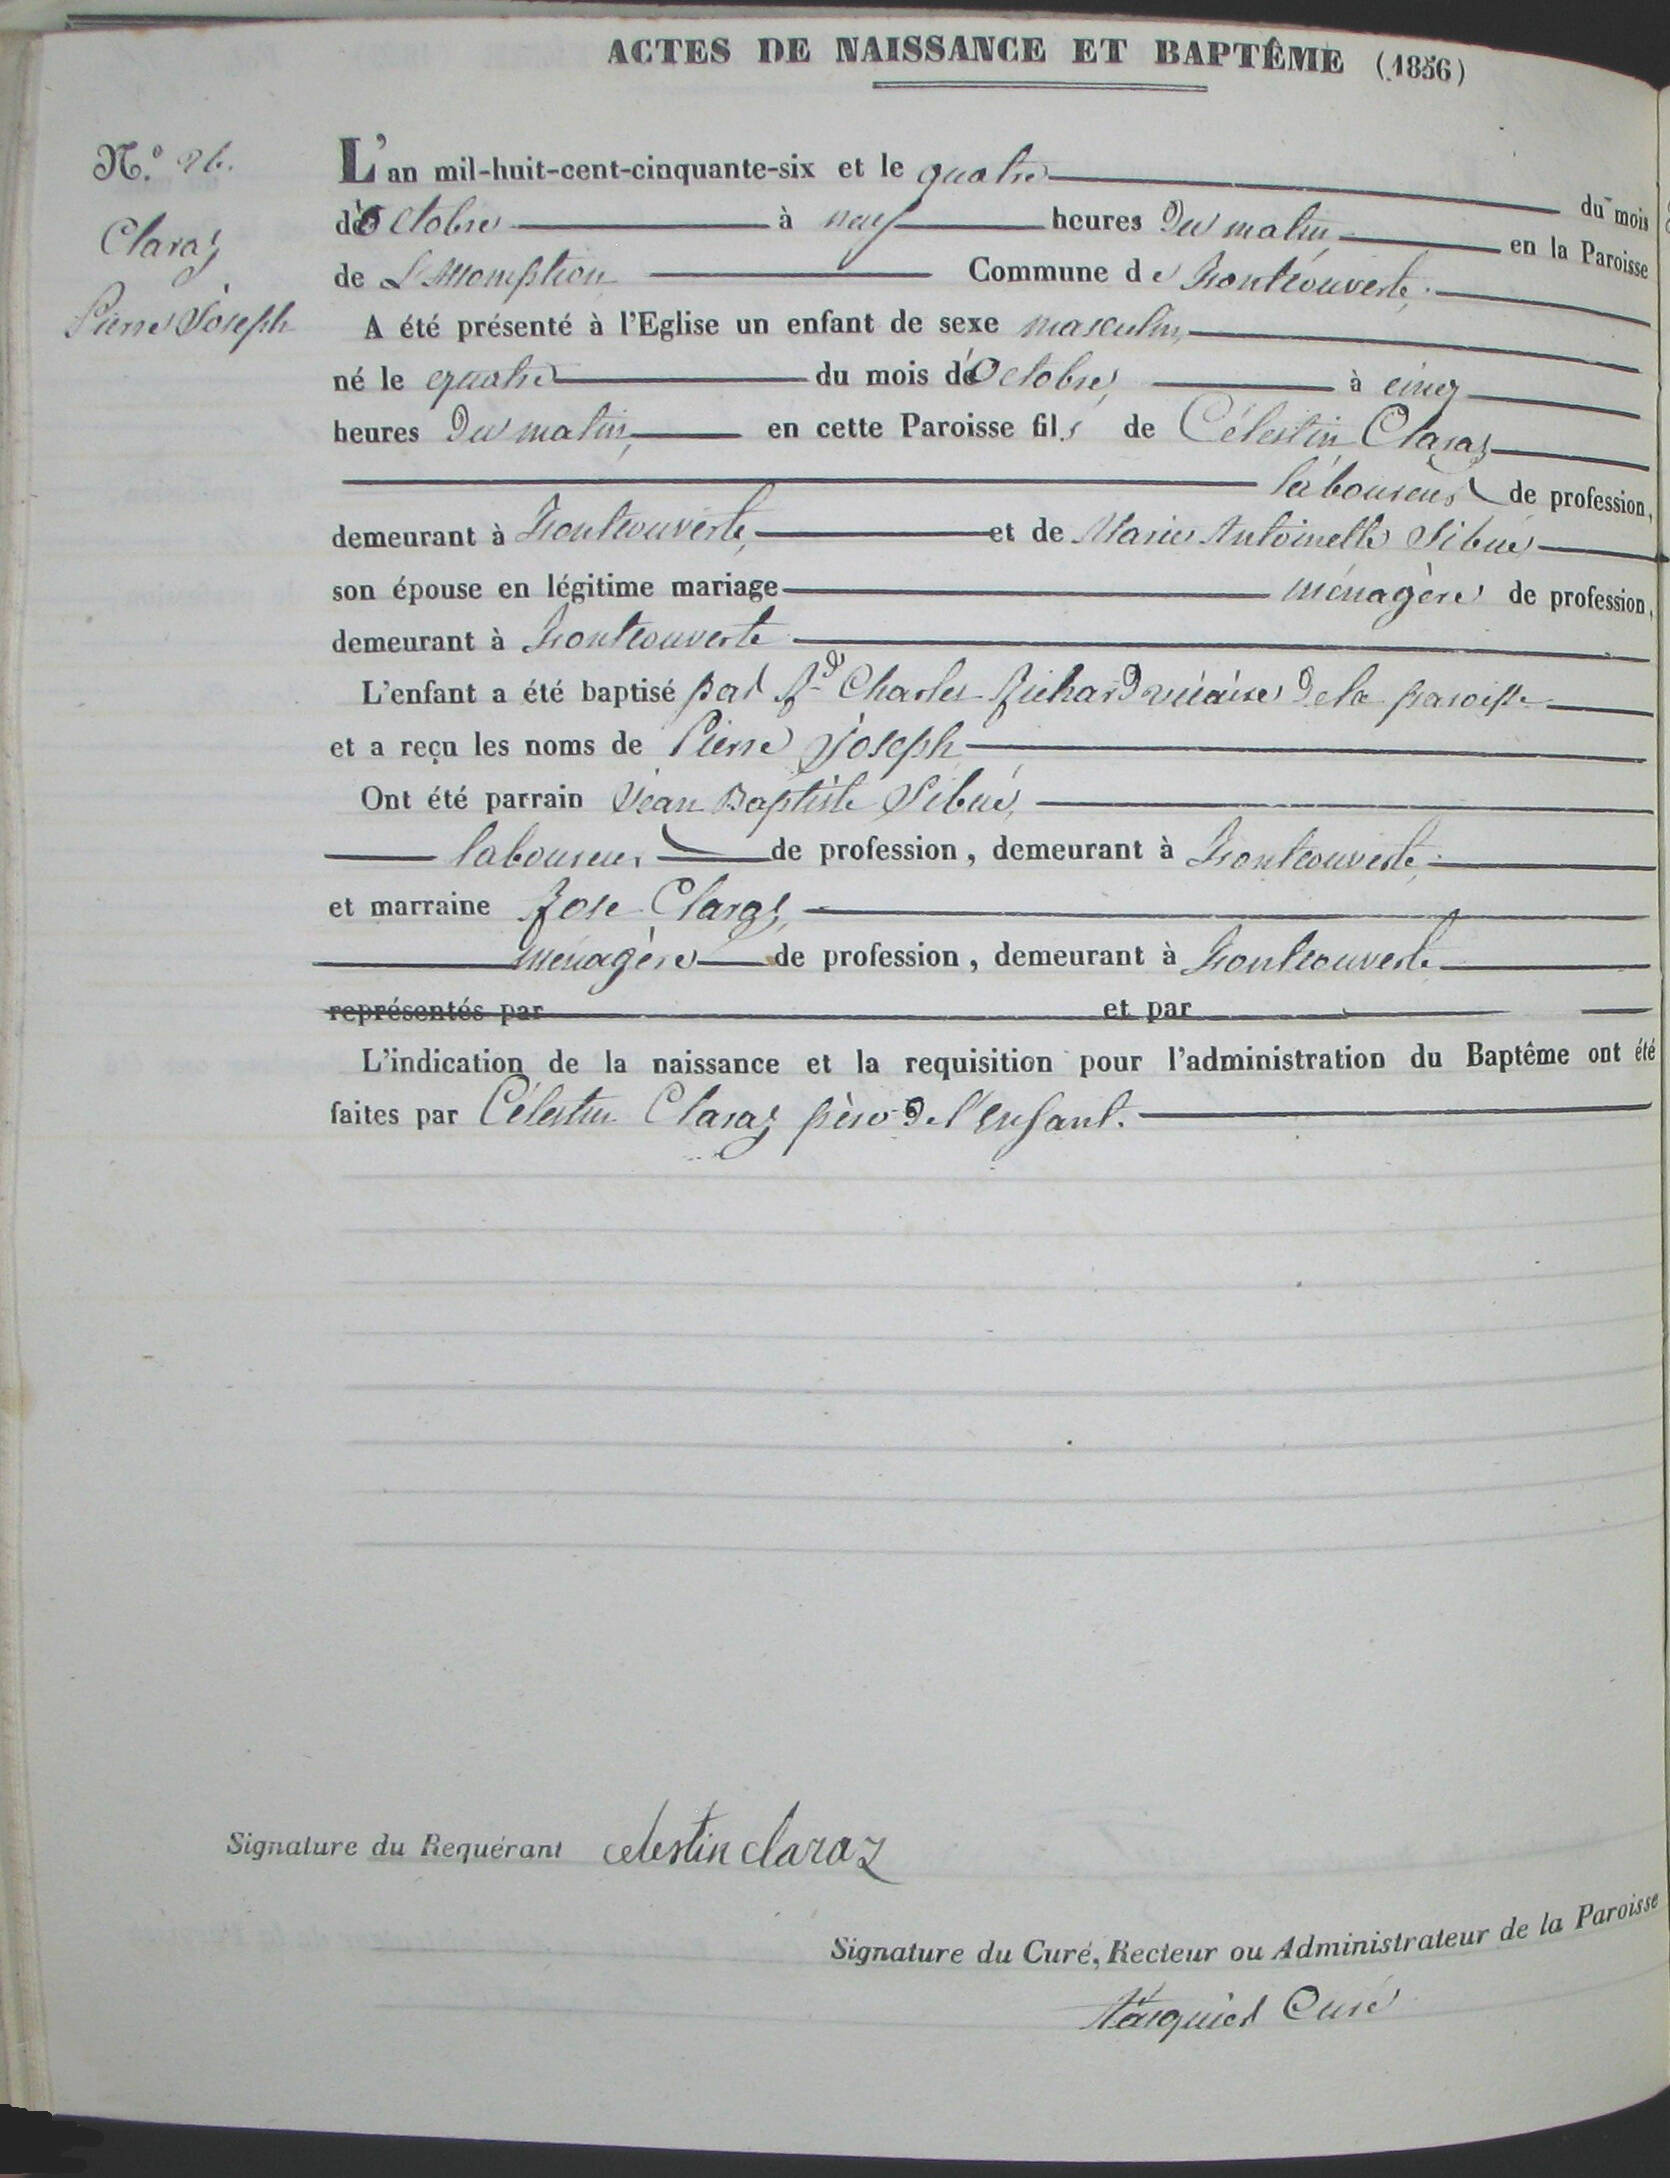 ACTES DE NAISSANCE ET BAPTÊME (1856)
N.º 26.
Claraz
Pierre Joseph
L'an mil-huit-cent-cinquante-six et le quatre du mois
d'Octobre à neuf heures du matin en la Paroisse
de L'Assomption Commune de Montrouverte
A été présenté à l'Eglise un enfant de sexe masculin,
né le quatre du mois d'Octobre, à cinq
heures du matin, en cette Paroisse fils de Célestin Claraz
laboureur de profession,
demeurant à Fontcouverte, et de Marie Antoinette Sibué
son épouse en légitime mariage ménagère de profession,
demeurant à Fontcouverte
L'enfant a été baptisé par Rd Charles Richard vicaire de la paroisse
et a reçu les noms de Pierre Joseph
Ont été parrain Jean Baptiste Sibué,
laboureur de profession, demeurant à Fontcouverte,
et marraine Rose Claraz,
ménagère de profession, demeurant à Fontcouverte
représentés par et par
L'indication de la naissance et la requisition pour l'administration du Baptême ont été
faites par Célestin Claraz père de l'enfant.
Signature du Requérant celestin claraz
Signature du Curé, Recteur ou Administrateur de la Paroisse
Curé